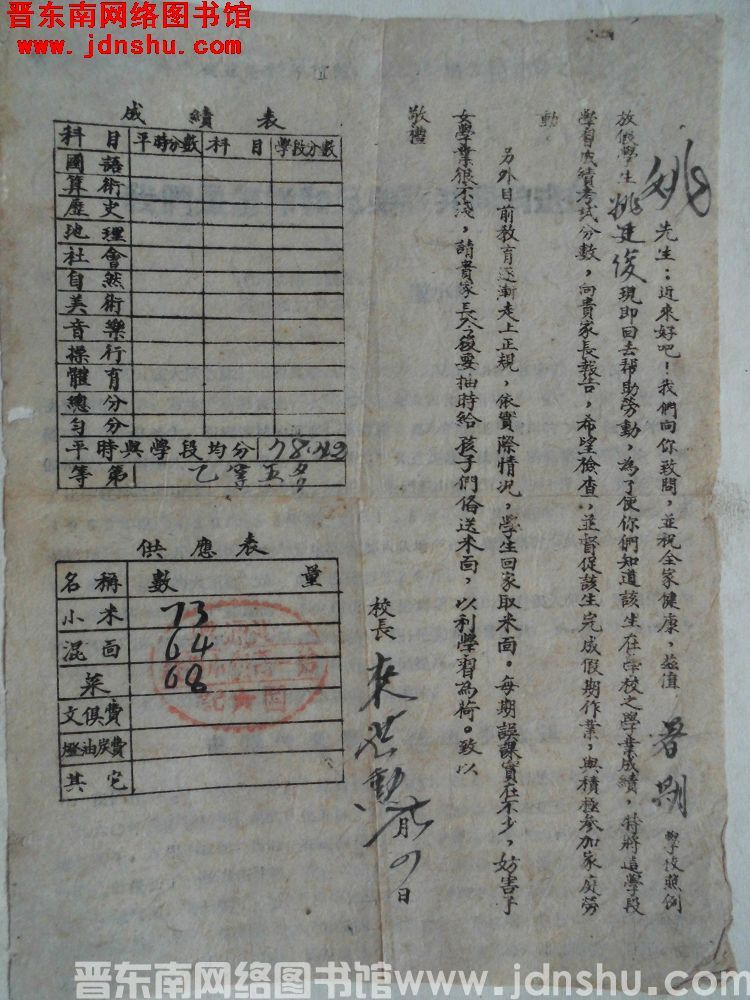 晋东南网络图书馆
www.jdnshu.com
姚先生：近來好吧！我們向你致問，並祝全家健康，茲值 暑期 學校照例
放假學生 姚建俊 現即回去帮助勞動，為了使你們知道該生在學校之學業成績，特將這學段
學習成績考試分數，向貴家長報告，希望檢查，並督促該生完成假期作業，與積極參加家庭勞
動
另外目前教育逐漸走上正規，依實際情况，學生回家取米面。每期誤課實在不少，妨害子
女學業很不浅，請貴家長今後要抽時給孩子們俻送米面，以利學習為荷。致以
敬禮
校長
月 日
成績表
科目 平時分數 科目 學段分數
國語
算術
歷史
地理
社會
自然
美術
音樂
操行
體育
總分
匀分
平時與學段均分 78.
等第 乙 五名
供應表
名稱 數量
小米 73
混面 64
菜 68
文俱費
燈油炭費
其它
晋东南网络图书馆www.jdnshu.com